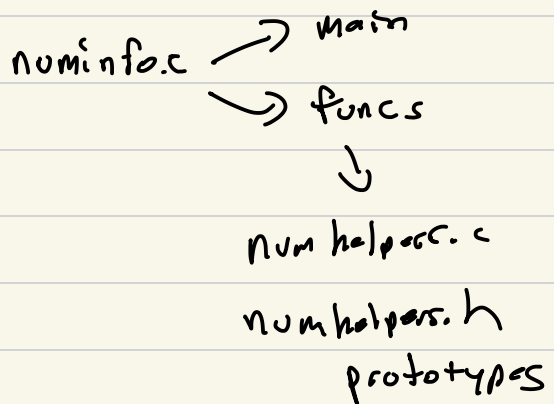 main
numinfo.c
funcs
numhelpers.c
numhelpers.h
prototypes